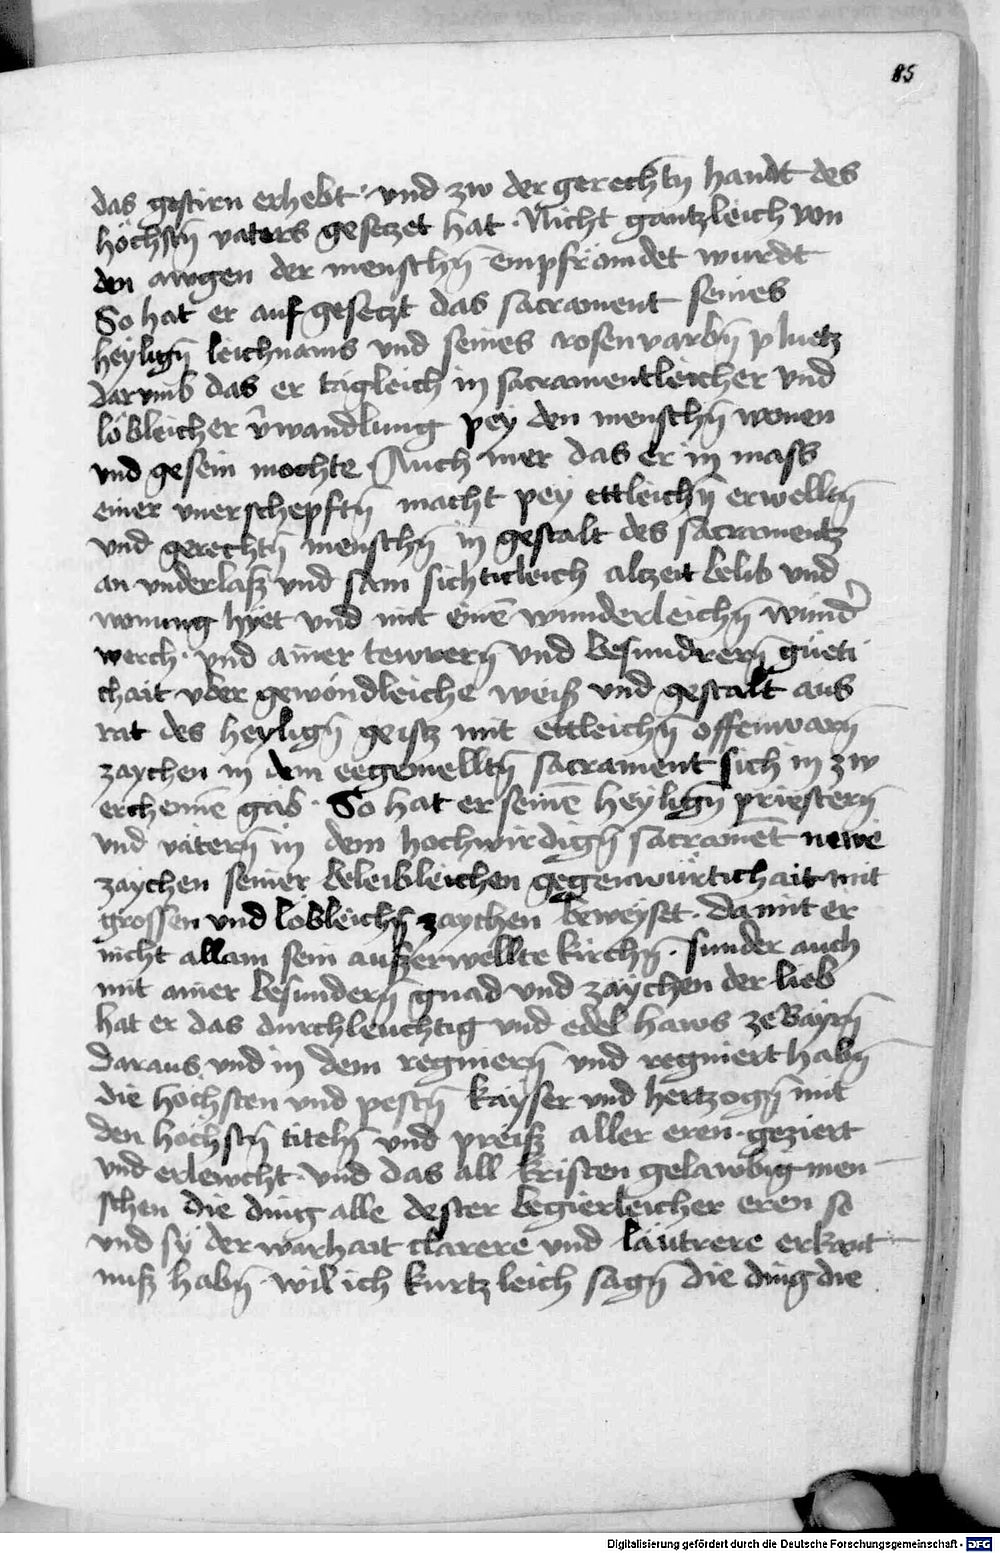 85
das gestirn erhebt · vnd zw der gerechtn̄ handt des
höchstn̄ vaters gesetzet hat · Nicht gantzleich von
den awgen der menschn̄ empfrömdet wurdt
So hat er auf gesetzt das sacrament seines
heylign̄ leichnams vnd seines rosenvarbn̄ pluetz
darvmb das er tägleich in sacramentleicher vnd
löbleicher v̂wandlung pey den menschn̄ wonen
vnd gesein mochte · Auch mer das er in mass
einer vnerschepftn̄ macht pey ettleichn̄ erwelltn̄
vnd gerechtn̄ menschn̄ in gestalt des sacramentz
an vnderlaß vnd sam sichticleich alczeit belib vnd
wonung hyet vnd mit einē wunderleichn̄ wund̾
werch · vnd ainer tewrern̄ vnd besundrern̄ güeti
chait vber gewöndleiche weiß vnd gestalt aus
rat des heylign̄ geistz mit ettleichn̄ offenwarn̄
zaychen in dem eegemelltn̄ sacrament sich in zw
erchennē gäb · So hat er seinē heylign̄ priestern̄
vnd vätern̄ in dem hochwirdign̄ sacramēt newe
zaychen seiner beleibleichen gegenwürtichait mit
grossen vnd löbleichn̄ zaychen beweyset · damit er
nicht allain sein außerwellte kirchn̄ · sunder auch
mit ainer besundern̄ gnad vnd zaychen der lieb
hat er das durchleuchtig vnd edel haws ze Bayrn̄
Daraus vnd in dem regniern̄ vnd regniert habn̄
die höchsten vnd pestn̄ kayser vnd hertzogn̄ mit
den höchstn̄ titeln̄ vnd preiß aller eren · geziert
vnd erlewcht · vnd das all kristen gelawbig men
schen die ding alle dester begierleicher eren so
vnd sy der warhait clarere vnd läutrere erkant
nuß habn̄ wil ich kurtzleich sagn̄ die ding die
Digitalisierung gefördert durch die Deutsche Forschungsgemeinschaft - DFG